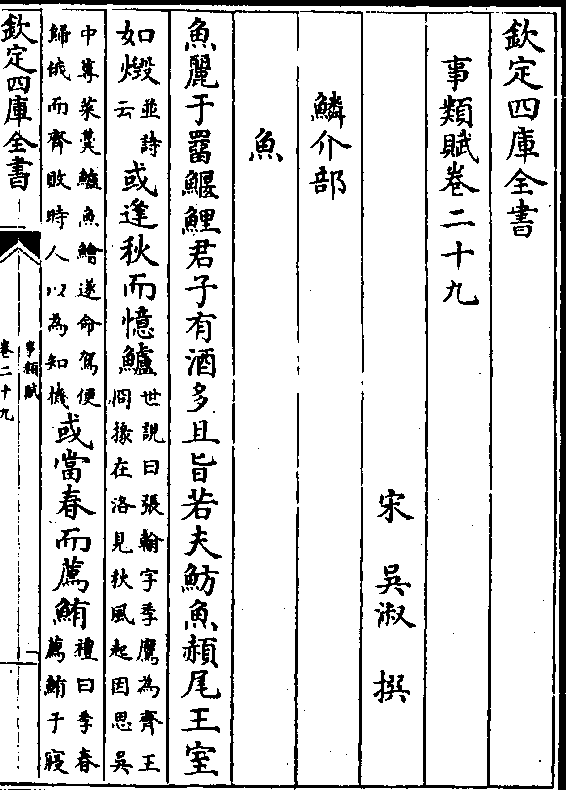 欽定四庫全書
事類賦卷二十九
宋 吳淑 撰
鱗介部
魚
魚麗于罶鰋鯉君子有酒多且旨若夫魴魚赬尾王室
如燬並詩云或逢秋而憶鱸世說曰張翰字季鷹為齊王冏掾在洛見秋風起因思吳
中蓴菜羮鱸魚鱠遂命駕便歸俄而齊敗時人以為知機或當春而薦鮪禮曰季春薦鮪于寢
欽定四庫全書
事類賦
卷二十九